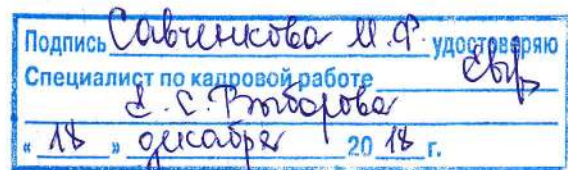 Подпись Савченкова М.Ф. удостоверяю
Специалист по кадровой работе
Е.С. Выборова
« 18 » декабря 2018 г.